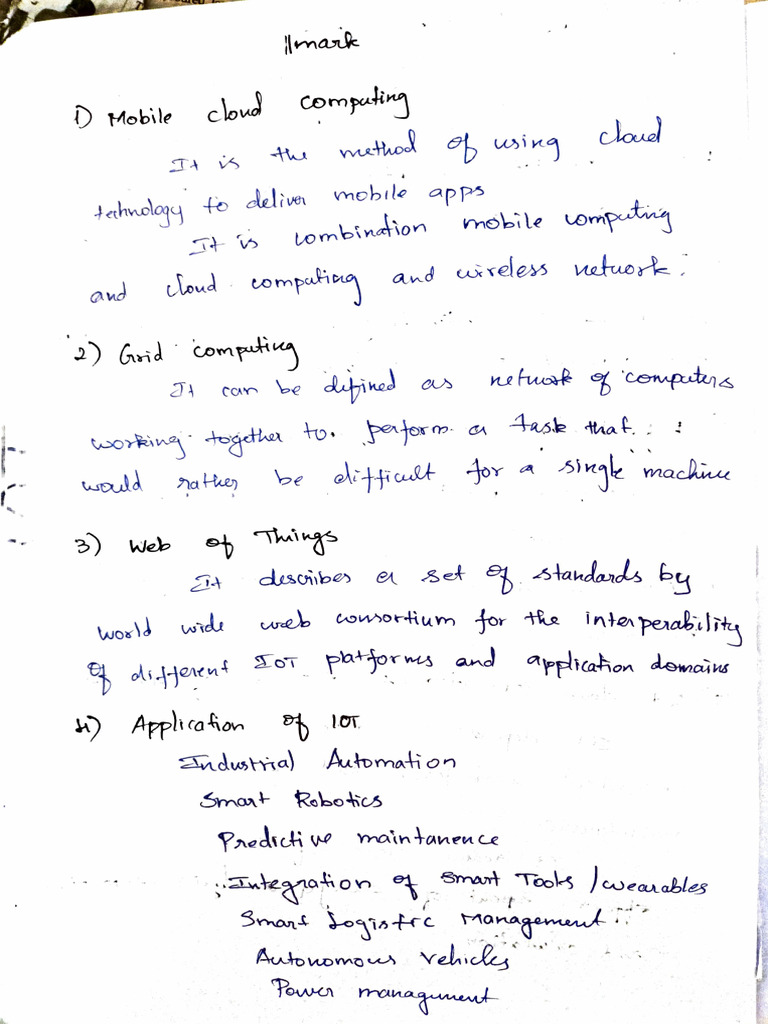 11mark
1) Mobile cloud computing
It is the method of using cloud
technology to deliver mobile apps
It is combination mobile computing
and cloud computing and wireless network.
2) Grid computing
It can be defined as network of computers
working together to perform a task that
would rather be difficult for a single machine
3) Web of Things
It describes a set of standards by
world wide web consortium for the interperability
of different IOT platforms and application domains
4) Application of IOT
Industrial Automation
Smart Robotics
Predictive maintanence
Integration of Smart Tools / wearables
Smart Logistic Management
Autonomous vehicles
Power management